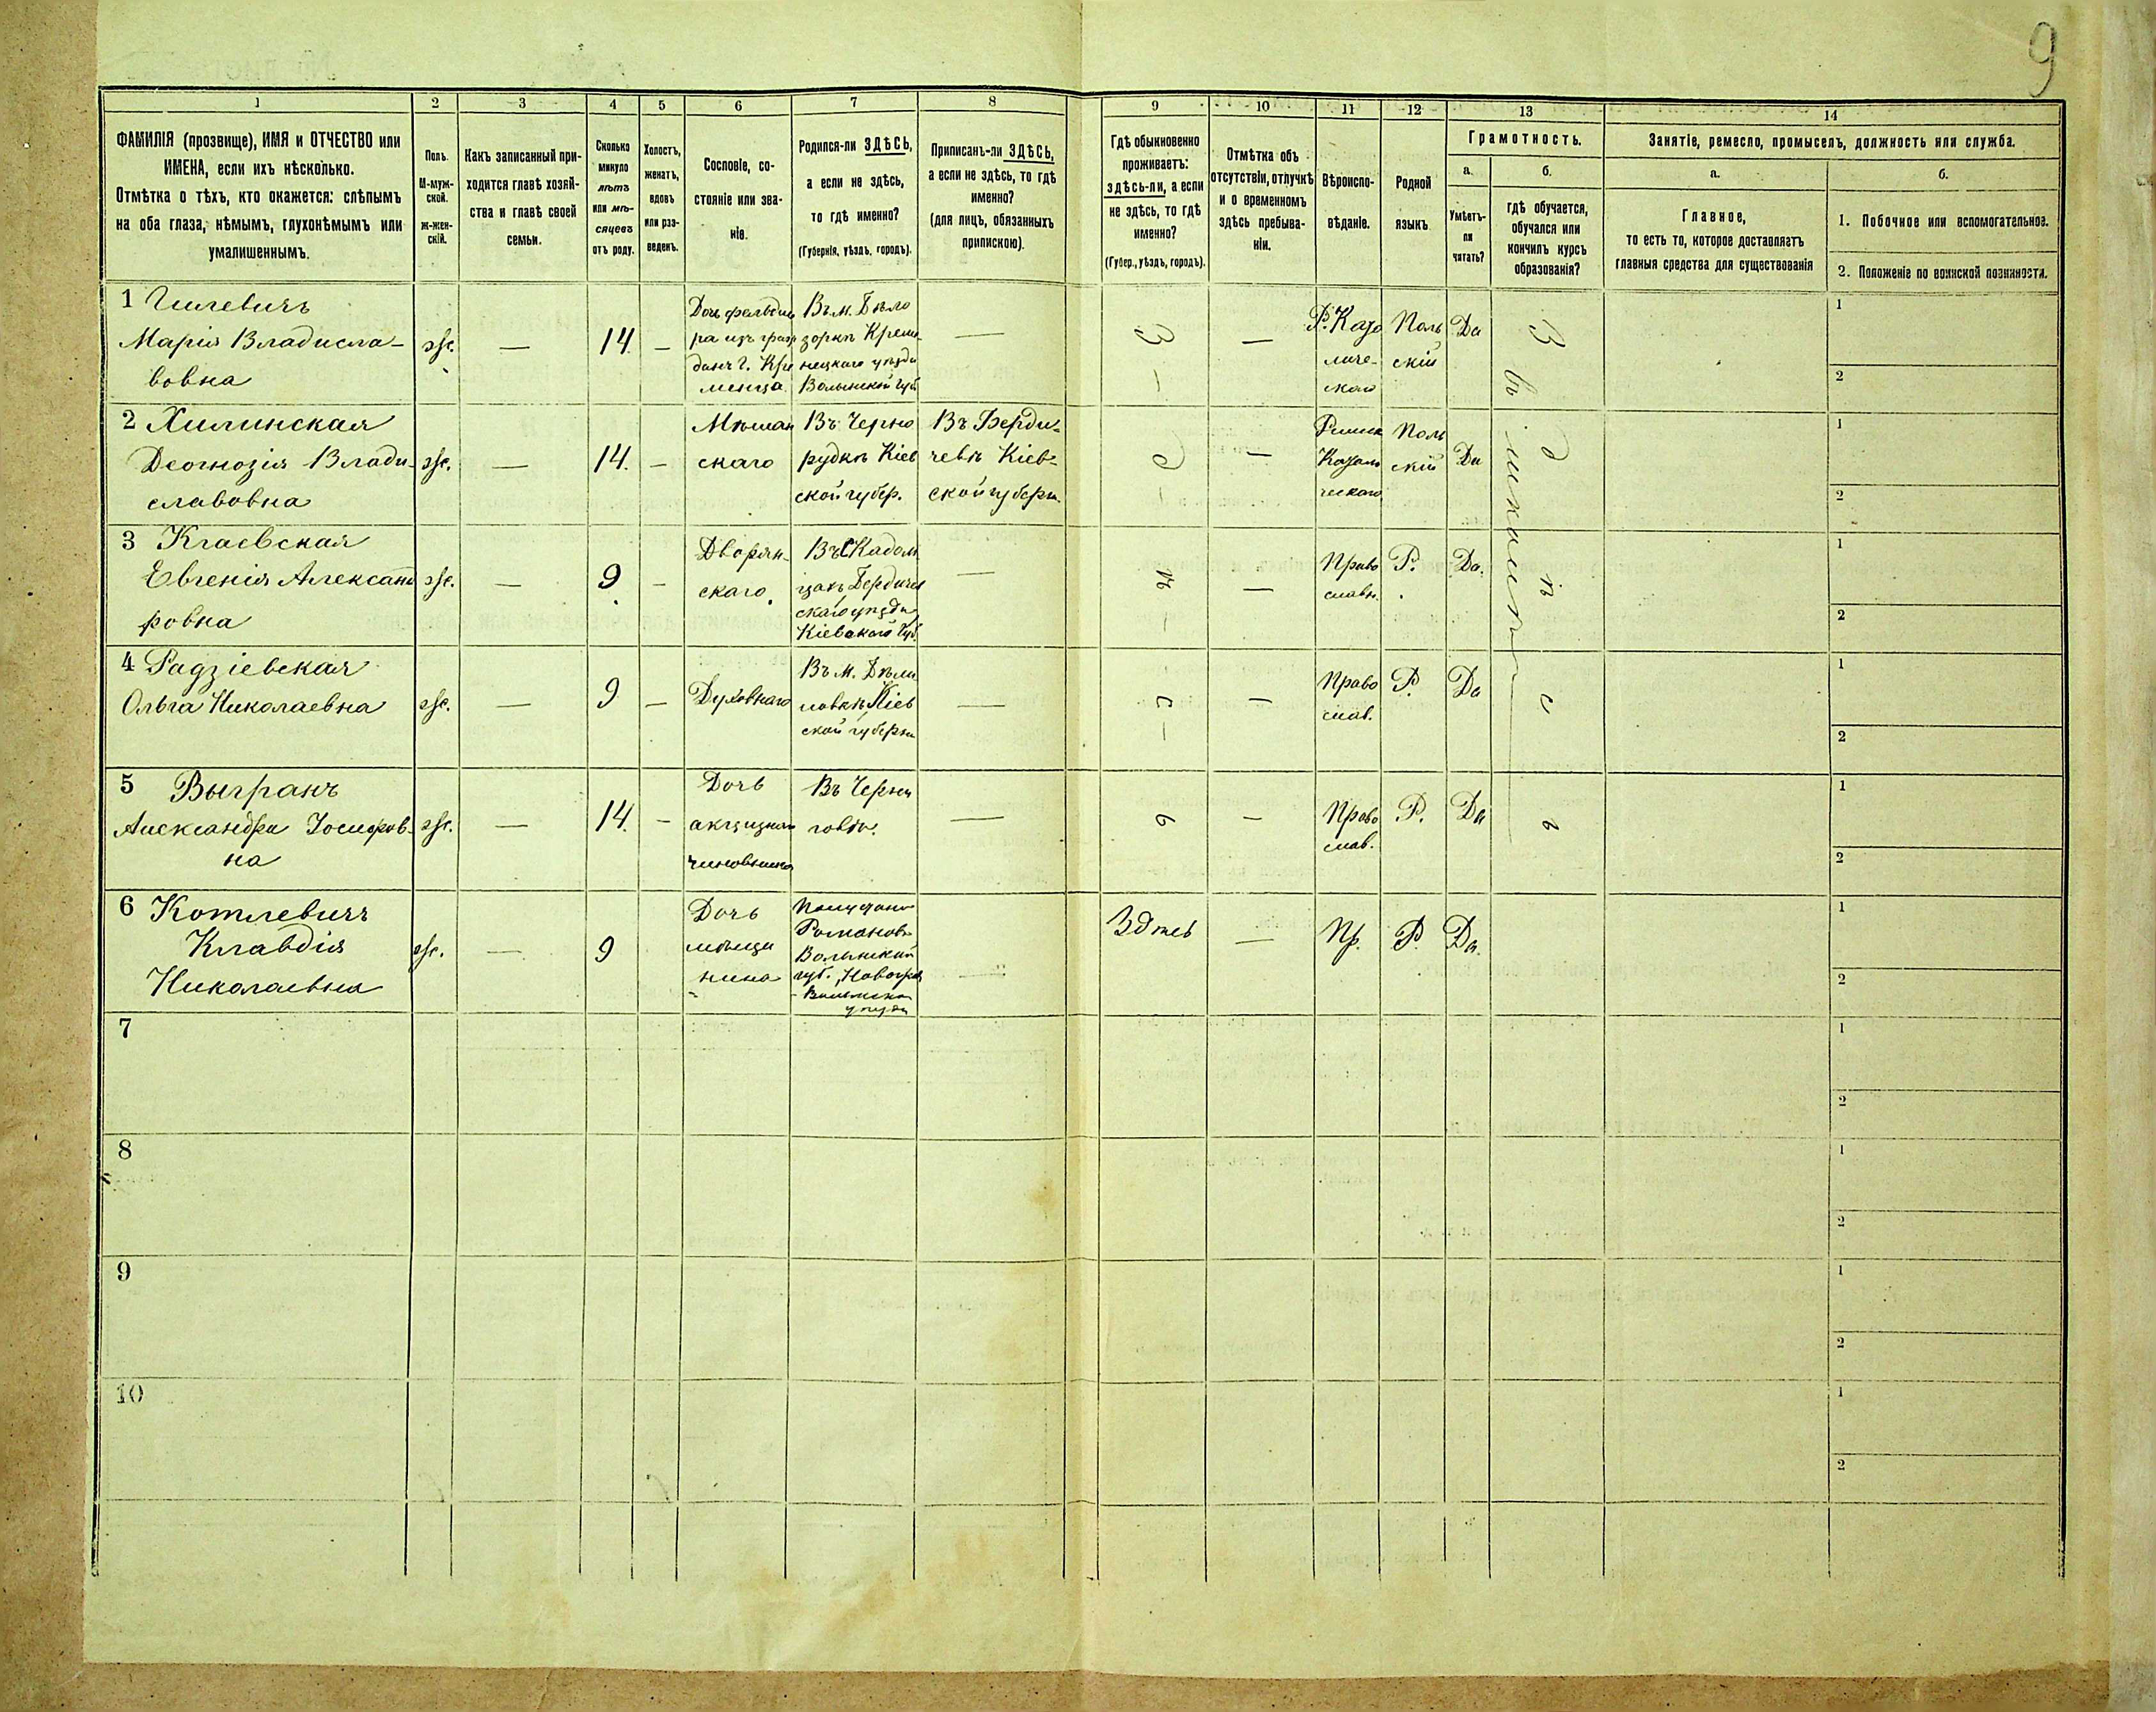 9
1 2 3 4 5 6 7 8 9 10 11 12 13 14
ФАМИЛІЯ (прозвище), ИМЯ и ОТЧЕСТВО или
ИМЕНА, если ихъ нѣсколько.
Отмѣтка о тѣхъ, кто окажется: слѣпымъ
на оба глаза, нѣмымъ, глухонѣмымъ или
умалишеннымъ.
Полъ.
М-муж-
ской.
ж-жен-
скій.
Какъ записанный при-
ходится главѣ хозяй-
ства и главѣ своей
семьи.
Сколько
минуло
лѣтъ
или мѣ-
сяцевъ
отъ роду.
Холостъ,
женатъ,
вдовъ
или раз-
веденъ.
Сословіе, со-
стояніе или зва-
ніе.
Родился-ли ЗДѢСЬ,
а если не здѣсь,
то гдѣ именно?
(Губернія, уѣздъ, городъ).
Приписанъ-ли ЗДѢСЬ,
а если не здѣсь, то гдѣ
именно?
(для лицъ, обязанныхъ
припискою).
Гдѣ обыкновенно
проживаетъ:
здѣсь-ли, а если
не здѣсь, то гдѣ
именно?
(Губер., уѣздъ, городъ).
Отмѣтка объ
отсутствіи, отлучкѣ
и о временномъ
здѣсь пребыва-
ніи.
Вѣроиспо-
вѣданіе.
Родной
языкъ.
Грамотность.
а.
Умѣетъ-
ли
читать?
б.
гдѣ обучается,
обучался или
кончилъ курсъ
образованія?
Занятіе, ремесло, промыселъ, должность или служба.
а.
Главное,
то есть то, которое доставляетъ
главныя средства для существованія
б.
1. Побочное или вспомогательное.
2. Положеніе по воинской повинности.
1 Гилевичъ
Марія Владисла-
вовна
ж.
—
14.
—
Дочь фельдше
ра изъ граж
данъ г. Кре
менца
Въ м. Бѣло
зоркѣ Креме
нецкаго уѣзда
Волынской губ.
—
—
Р. Като
личе-
скаго
Поль
скій
Да
1
2
2 Хилинская
Леогнозія Влади-
славовна
ж.
—
14.
—
Мѣщан
скаго
Въ Черно
рудкѣ Кіев
ской губер.
Въ Берди-
чевѣ Кіев-
ской губерн.
—
Римск
Католи
ческаго
Поль
скій
Да
1
2
3 Кгаевская
Евгенія Александ
ровна
ж.
—
9
—
Дворян-
скаго.
Бердичев
скаго уѣзда
Кіевской губ.
—
—
Право
славн.
Р.
Да.
1
2
4 Радзіевская
Ольга Николаевна
ж.
—
9
—
Духовнаго
Въ м. Бѣли
ловкѣ Кіев
ской губерн
—
—
Право
слав.
Р.
Да
1
2
5 Выгранъ
Александра Іосифов-
на
ж.
—
14.
—
Дочь
акцизнаго
чиновника
Въ Черни
говѣ.
—
—
Право
слав.
Р.
Да
1
2
З
д
ѣ
с
ь
З
д
ѣ
с
ь
въ школѣ
6 Котлевичъ
Клавдія
Николаевна
ж.
—
9
Дочь
мѣща
нина
Романовъ
Волынской
губ., Новоград
-Волынска
уѣзда
—
Здѣсь
—
Пр.
Р.
Да.
1
2
7
1
2
8
1
2
9
1
2
10
1
2